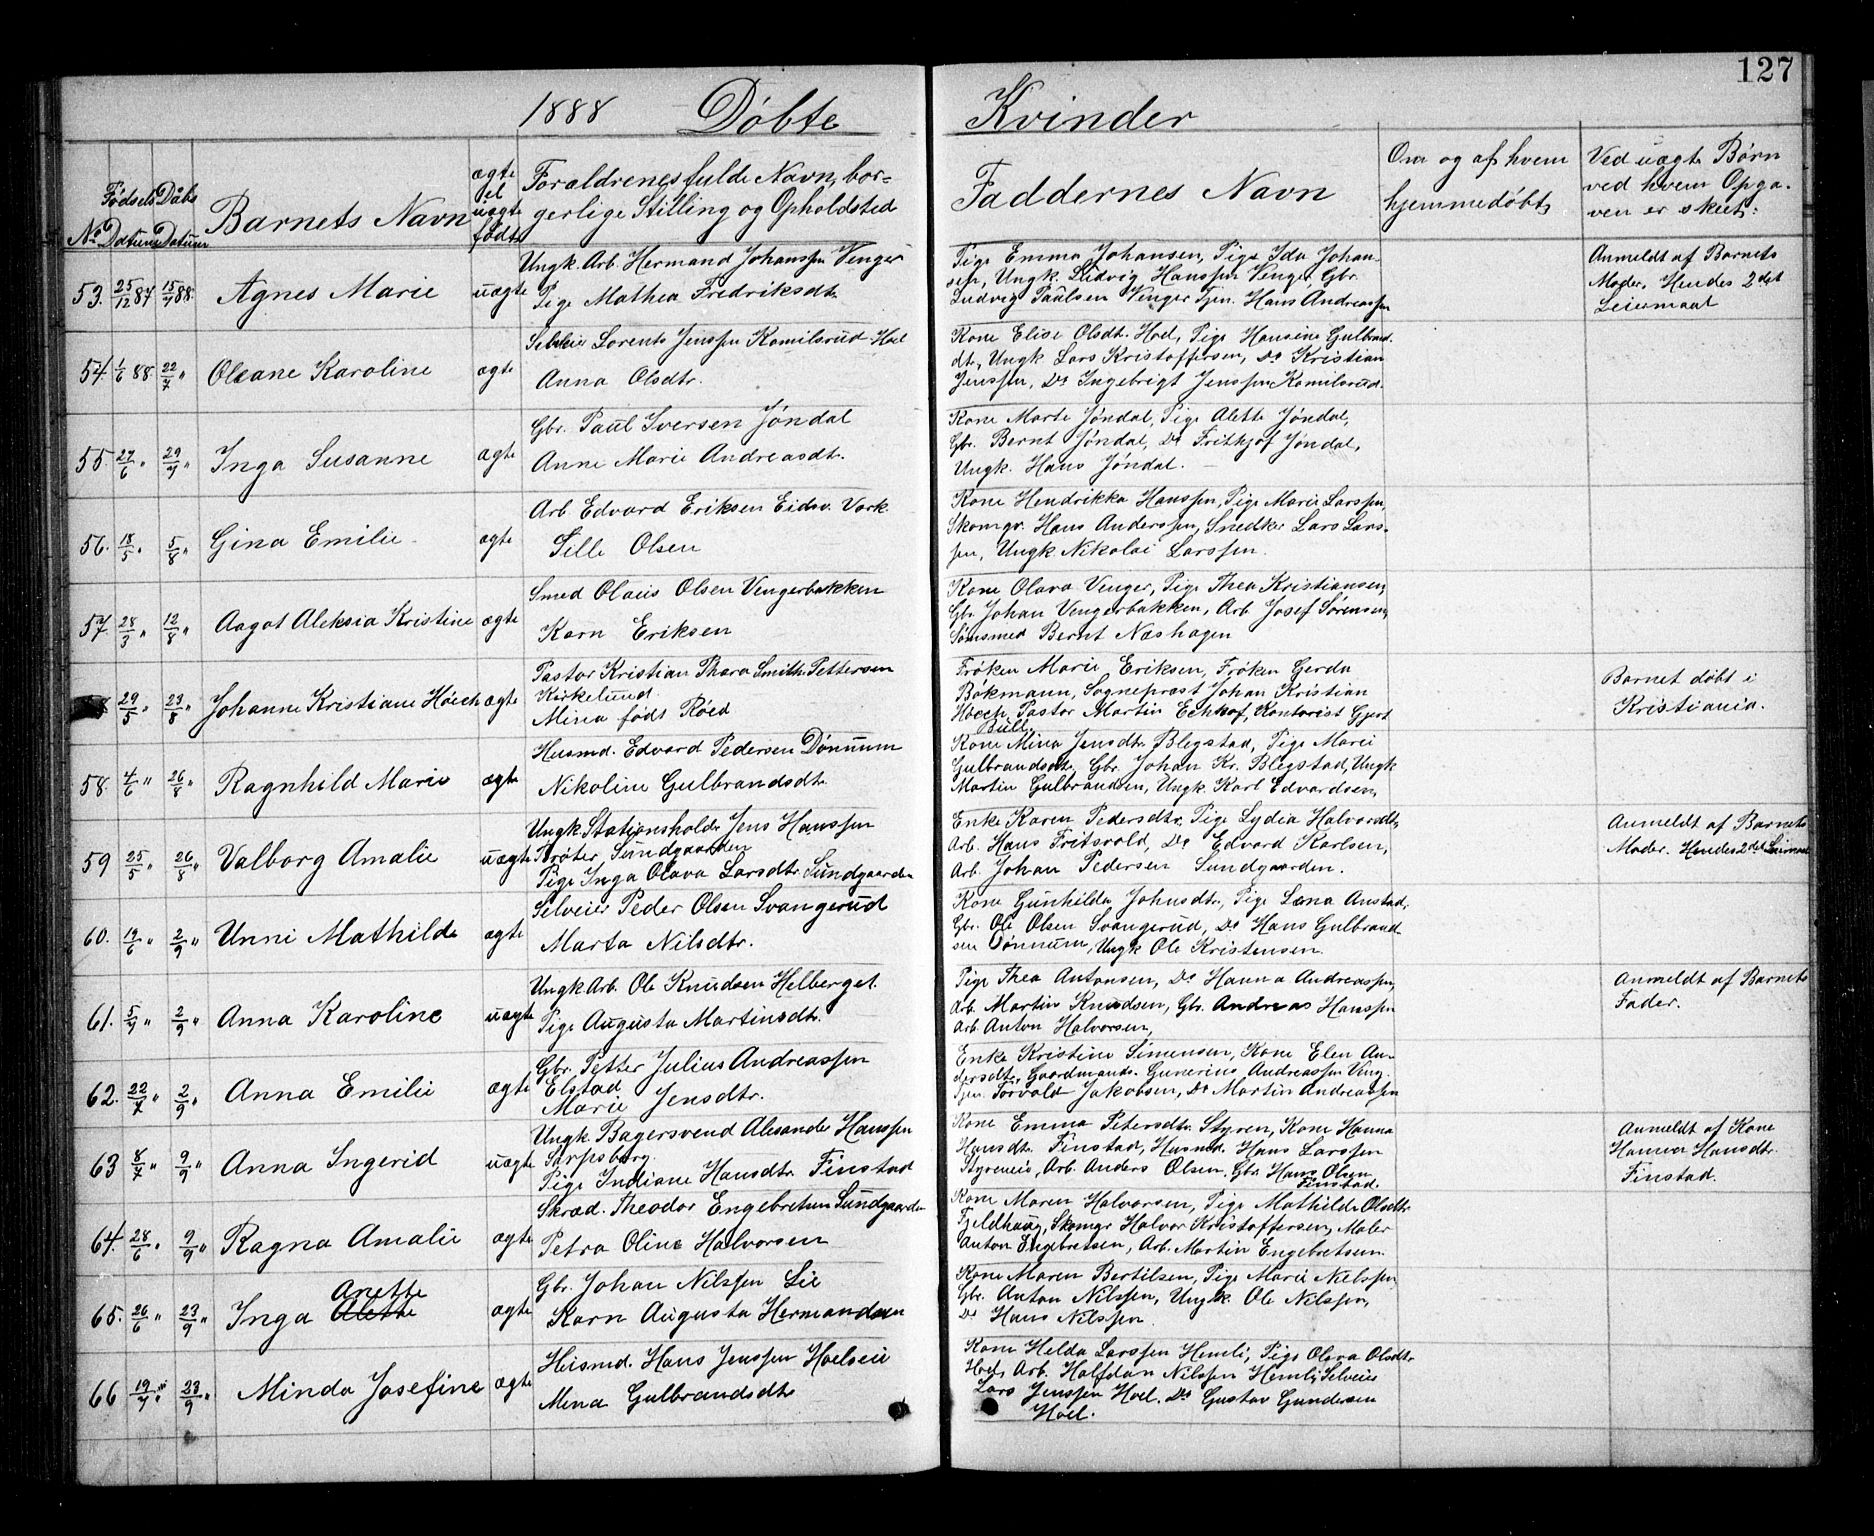 127
1888 Døbte Kvinder
No
Fødsels Datum
Døbs Datum
Barnets Navn
ægte el uægte født
Forældrenes fulde Navn, bor-
gerlige Stilling og Opholdsted
Faddernes Navn
Om og af hvem
hjemmedøbt,
Ved uægte Børn
ved hvem Opga-
ven er skeet:
53. 25/12 87 15/7 88. Agnes Marie uægte
Ungk. Arb. Hermand Johanssen Venger
Pige Mathea Fredriksdtr.
Pige Emma Johansen, Pige Ida Johan-
sen, Ungk. Ludvig Hanssen Venger, Gbr.
Ludvig Paulsen Venger Tjen. Hans Andreassen
Anmeldt af Barnets
Moder. Hendes 2det
Leiermaal
54. 1/6 88. 22/7 " Oleane Karoline ægte
Selveier Lorents Jenssen Komilsrud Hoel
Anna Olsdtr.
Kone Elise Olsdt. Hoel, Pige Hansine Gulbrand-
dt., Ungk Lars Kristoffersen, Do Kristian
Jenssen, Do Ingebrigt Jenssen Komilsrud.
55. 27/6 " 29/7 " Inga Susanne ægte
Gbr. Paul Iversen Jøndal
Anne Marie Andreasdt.
Kone Marte Jøndal, Pige Alette Jøndal,
Gbr. Bernt Jøndal, Do Frithjof Jøndal,
Ungk. Hans Jøndal.
56. 18/5 " 5/8 " Gina Emilie. ægte
Arb. Edvard Eriksen Eidsv. Værk
Sille Olsen
Kone Hendrikka Hanssen, Pige Marie Larssen,
Skomgr. Hans Anderssen, Snedker Lars Lars-
sen, Ungk. Nikolai Larssen.
57. 28/3 " 12/8 " Aagot Aleksia Kristine ægte
Smed Olaus Olsen Vengerbakken
Karn Eriksen
Kone Olava Venger, Pige Thea Kristiansen,
Gbr. Johan Vengerbakken, Arb. Josef Sørensen,
Sømsmed Bernt Næshagen
29/5 " 23/8 " Johanne Kristiane Høech ægte
Pastor Kristian Thora Smith Pettersen
Kirkelund.
Mina født Röed
Frøken Marie Eriksen, Frøken Gerda
Bökmann, Sogneprest Johan Kristian
Höech, Pastor Martin Eckhof, Kontorist Gjert
Bull.
Barnet døbt i
Kristiania.
58. 4/6 " 26/8 " Ragnhild Marie ægte
Husmd. Edvard Pedersen Dønnum
Nikoline Gulbrandsdtr.
Kone Mina Jensdtr. Blegstad, Pige Marie
Gulbrandsdt. Gbr. Johan Kr. Blegstad, Ungk
Martin Gulbrandsen, Ungk. Karl Edvardsen,
59 25/5 " 26/8 " Valborg Amalie uægte
Ungk. Stationsholdr. Jens Hanssen
Trøter, Sundgaarden
Pige Inga Olava Larsdtr. Sundgaarden
Enke Karen Pedersdtr, Pige Lydia Halvorsdtr,
Arb. Hans Fritsvold, Do Edvard Karlsen,
Arb. Johan Pedersen Sundgaarden.
Anmeldt af Barnets
Moder. Hendes 2det Leiermaal
60. 19/6 " 2/9 " Unni Mathilde ægte
Selveier Peder Olsen Svangerud
Marta Nilsdtr.
Kone Gunhilda Johnsdtr, Pige Lena Anstad,
Gbr. Ole Olsen Svangerud, Do Hans Gulbrand-
sen Dønnum, Ungk Ole Kristensen.
61. 5/7 " 2/9 " Anna Karoline uægte
Ungk Arb. Ole Knudsen Helberget.
Pige Augusta Martinsdtr.
Pige Thea Antonsen, Do Hanna Andreassen,
Arb. Martin Knudsen, Gbr. Andreas Hanssen
Arb. Anton Halvorsen,
Anmeldt af Barnets
Fader.
62. 22/7 " 2/9 " Anna Emilie ægte
Gbr. Petter Julius Andreassen
Elstad
Marie Jensdtr.
Enke Kristine Simensen, Kone Elen An-
dersdtr. Gaardmands. Gunerius Andreassen Veng.
Tjen. Torvald Jakobsen, Do Martin Andreassen
63 8/7 " 9/9 " Anna Ingerid uægte
Ungk. Bagersvend Alexander Hanssen
Sarpsborg.
Pige Indiane Hansdtr. Finstad
Kone Emma Petersdtr. Styren, Kone Hanna
Hansdtr. Finstad, Husmd. Hans Larssen
Styreneie, Arb. Anders Olsen, Gbr. Hans Olsen
Finstad.
Anmeldt af Kone
Hanna Hansdtr.
Finstad.
64. 28/6 " 9/9 " Ragna Amalie ægte
Skræd. Theodor Engebretsen Sundgaarden
Petra Oline Halvorsen
Kone Maren Halvorsen, Pige Mathilde Olsdtr
Fjeldhaug, Skomgr Halvor Kristoffersen, Maler
Anton Engebretsen, Arb. Martin Engebretsen.
65. 26/6 " 23/9 " Inga Alette Anette ægte
Gbr. Johan Nilssen Lie
Karn Augusta Hermandsen
Kone Maren Bertilsen, Pige Marie Nielssen,
Gbr. Anton Nilssen, Ungk. Ole Nilssen,
Do Hans Nilssen.
66 19/7 " 23/9 " Minda Josefine ægte
Husmd. Hans Jenssen Hoelseie
Mina Gulbrandsdtr
Kone Helda Larssen Hemli, Pige Olava Olsdtr.
Hoel, Arb. Halfdan Nilssen Hemli, Selveier
Lars Jenssen Hoel. Do Gustav Gundersen
Hoel.